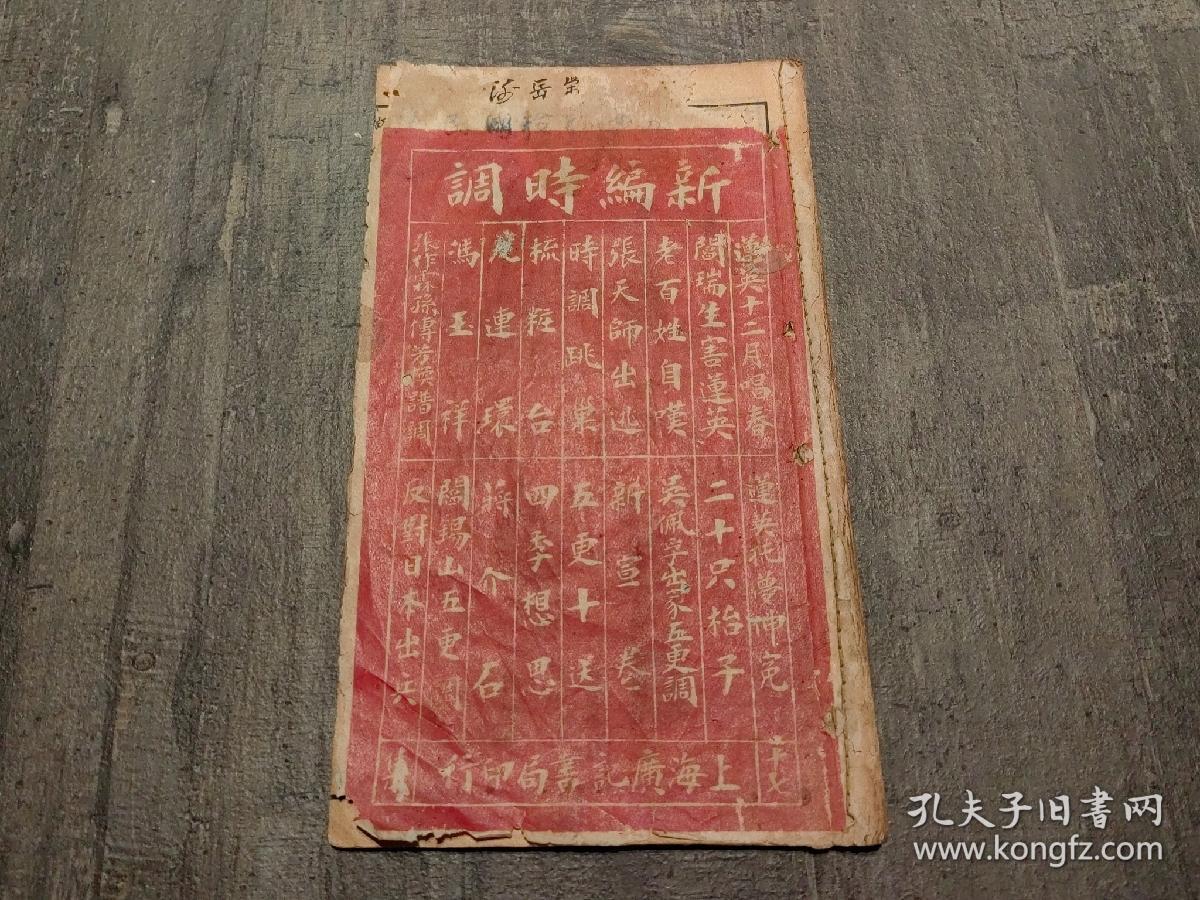 新編時調
蓮英十二月唱春 蓮英托夢伸冤
閻瑞生害蓮英 二十只枱子
老百姓自嘆 吳佩孚出家五更調
張天師出巡 新宣卷
時調跳巢 五更十送
梳粧台 四季想思
連環 蔣介石
馮玉祥 閻錫山五更調
張作霖孫傳芳 譜調 反對日本出兵
上海廣記書局印行
孔夫子旧書网
www.kongfz.com